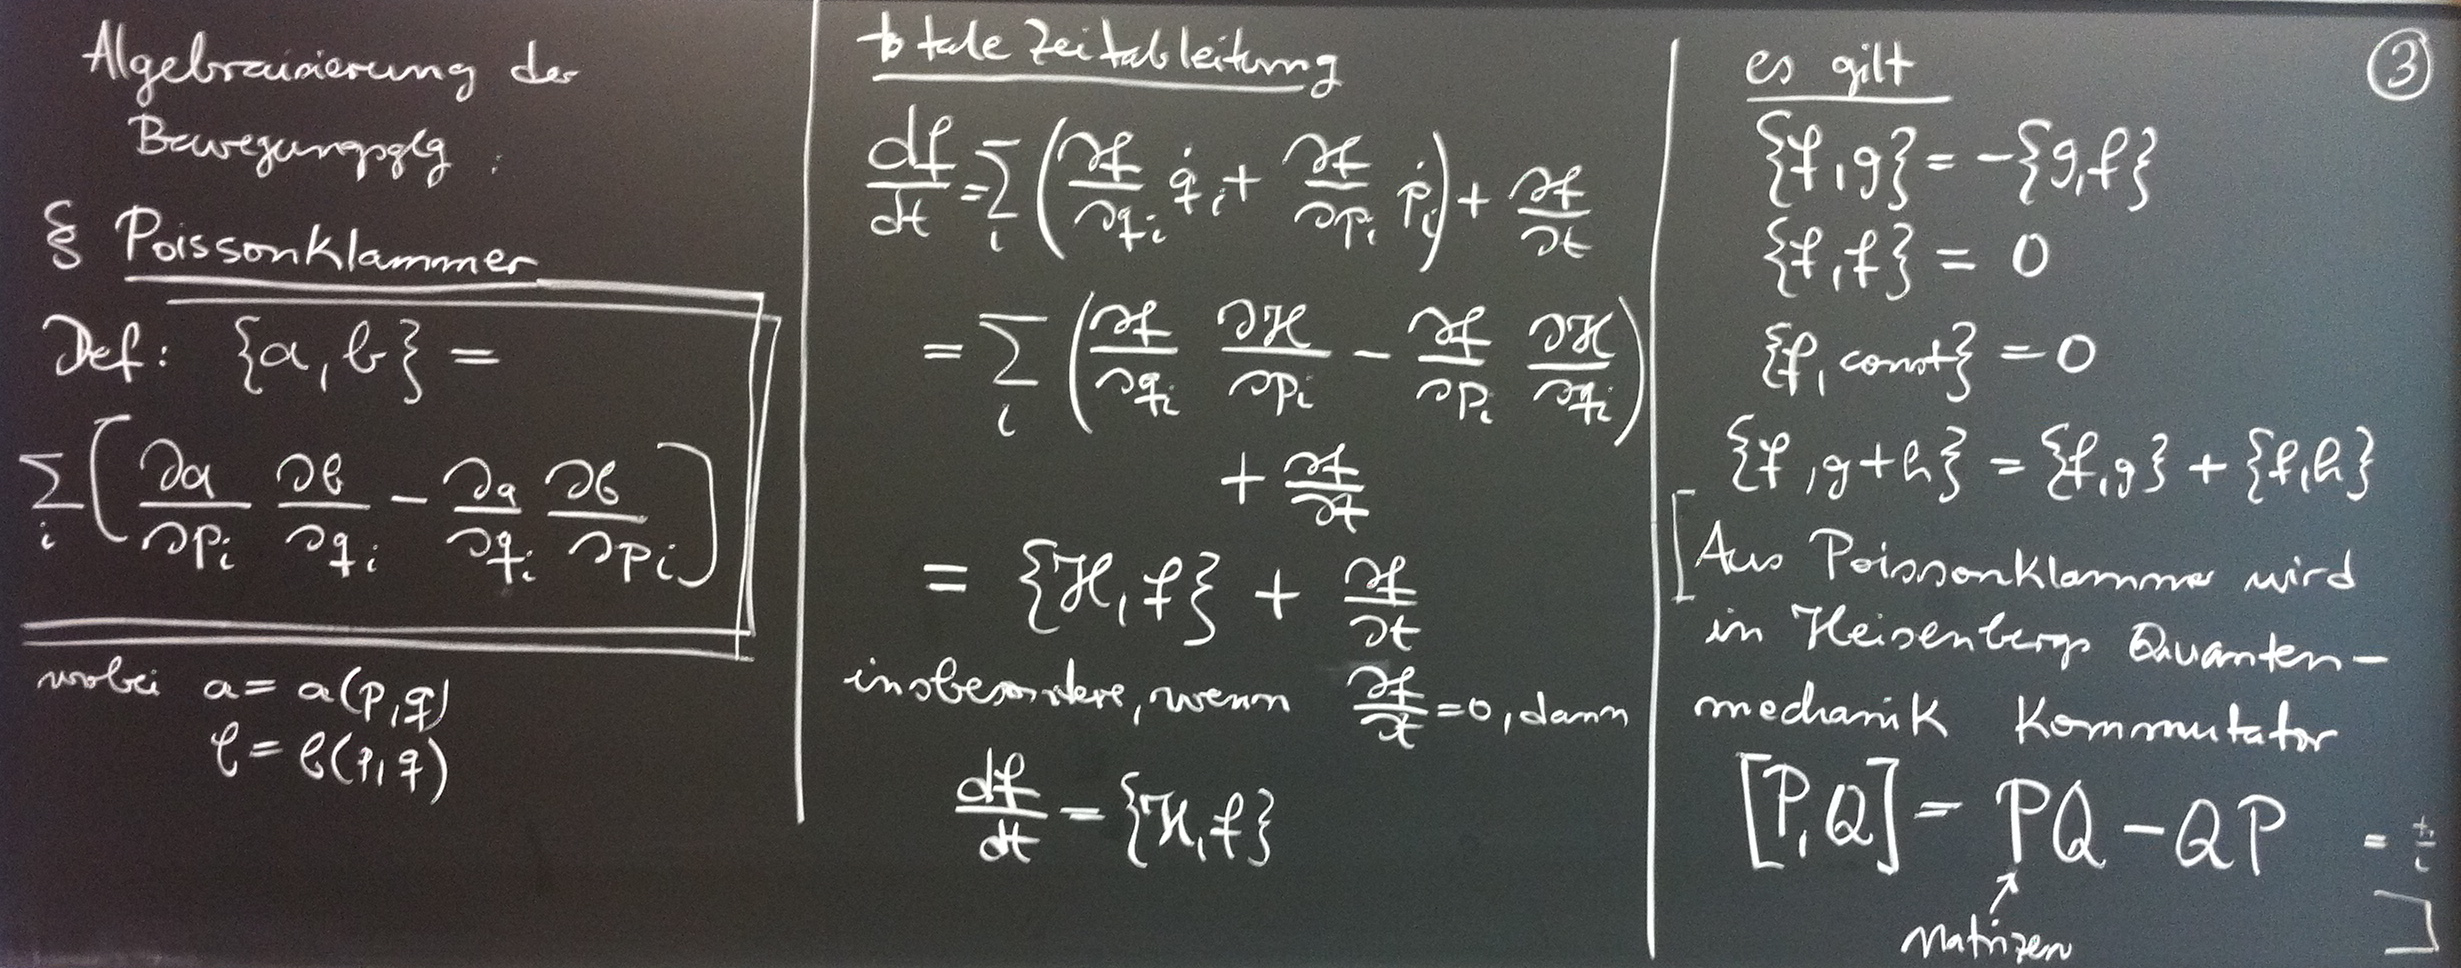 Algebraisierung der
Bewegungsglg :
§ Poissonklammer
Def: {a, b} =
∑_i ( ∂a/∂p_i ∂b/∂q_i − ∂a/∂q_i ∂b/∂p_i )
wobei a = a(p,q)
b = b(p,q)
totale Zeitableitung
df/dt = ∑_i ( ∂f/∂q_i q̇_i + ∂f/∂p_i ṗ_i ) + ∂f/∂t
= ∑_i ( ∂f/∂q_i ∂H/∂p_i − ∂f/∂p_i ∂H/∂q_i )
+ ∂f/∂t
= {H, f} + ∂f/∂t
insbesondere, wenn ∂f/∂t = 0, dann
df/dt = {H, f}
③
es gilt
{f, g} = −{g, f}
{f, f} = 0
{f, const} = 0
{f, g+h} = {f, g} + {f, h}
[ Aus Poissonklammer wird
in Heisenbergs Quanten-
mechanik Kommutator
[P, Q] = PQ − QP = ħ/i
↗
Matrizen ]